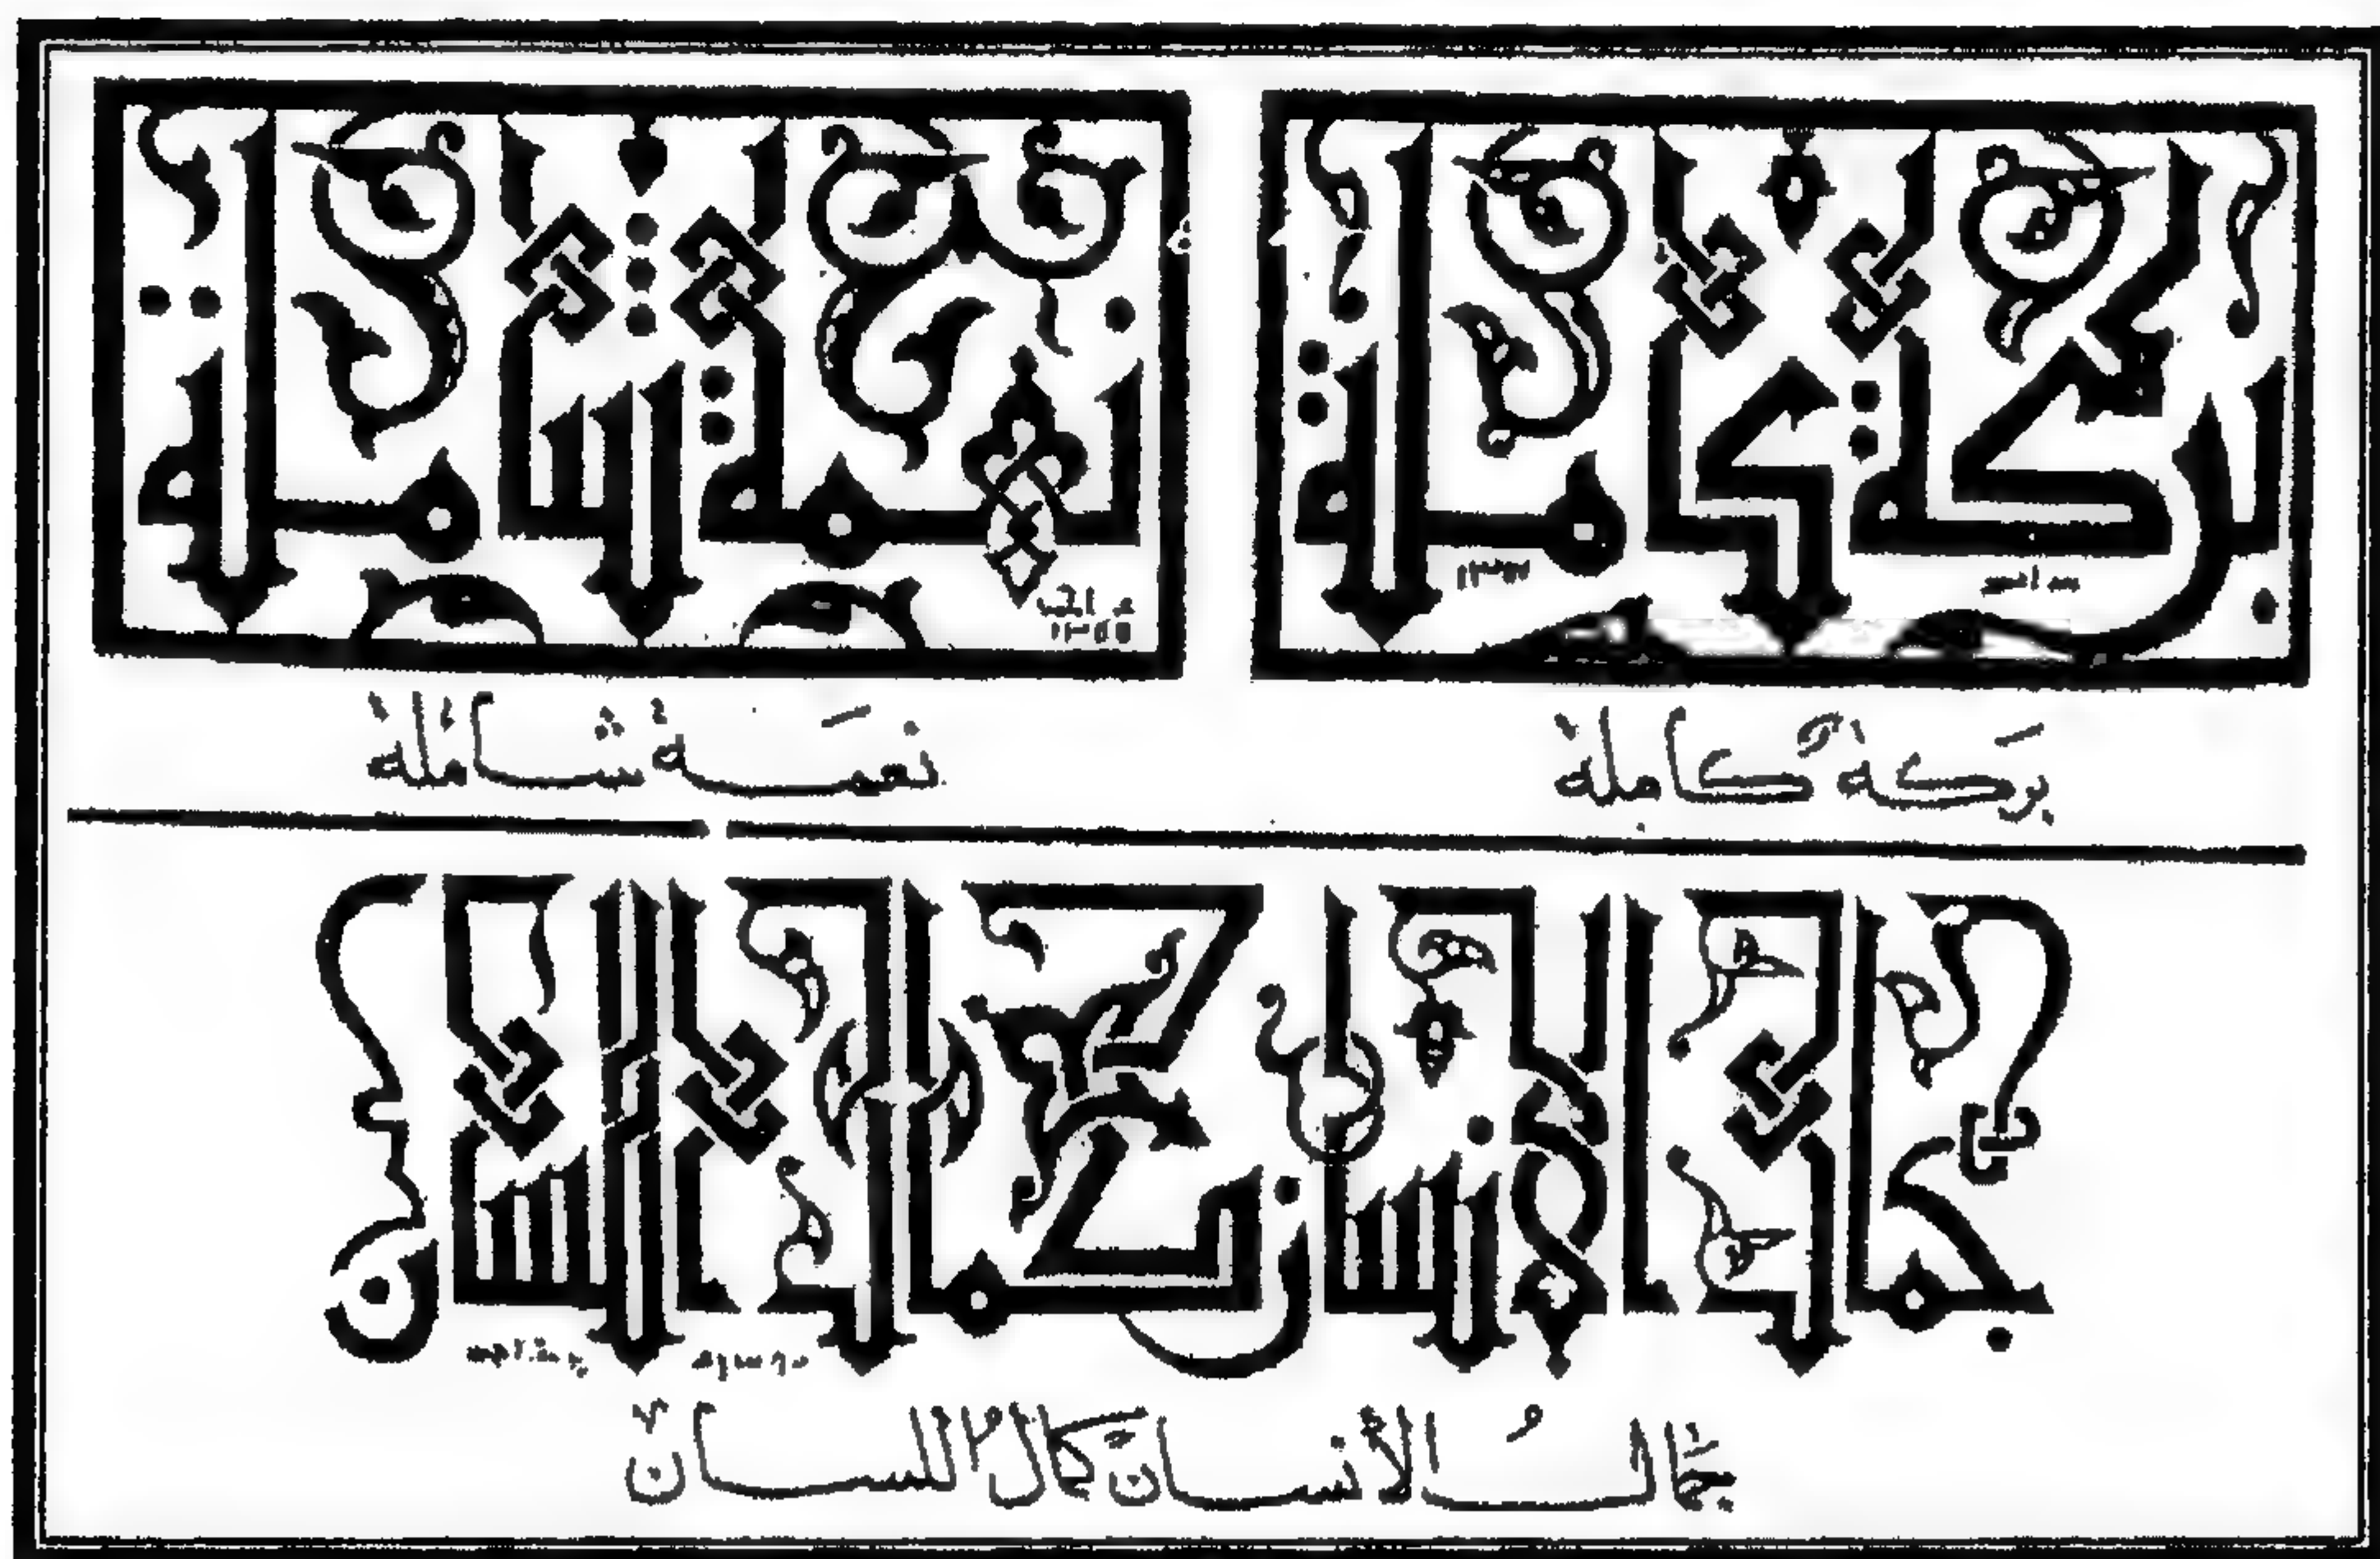 بركة كاملة
نعمة شاملة
بَركة كاملة
نعمَة شاملة
جمال الإنسان كمال اللسان
جمالُ الأنسان كمال اللسان